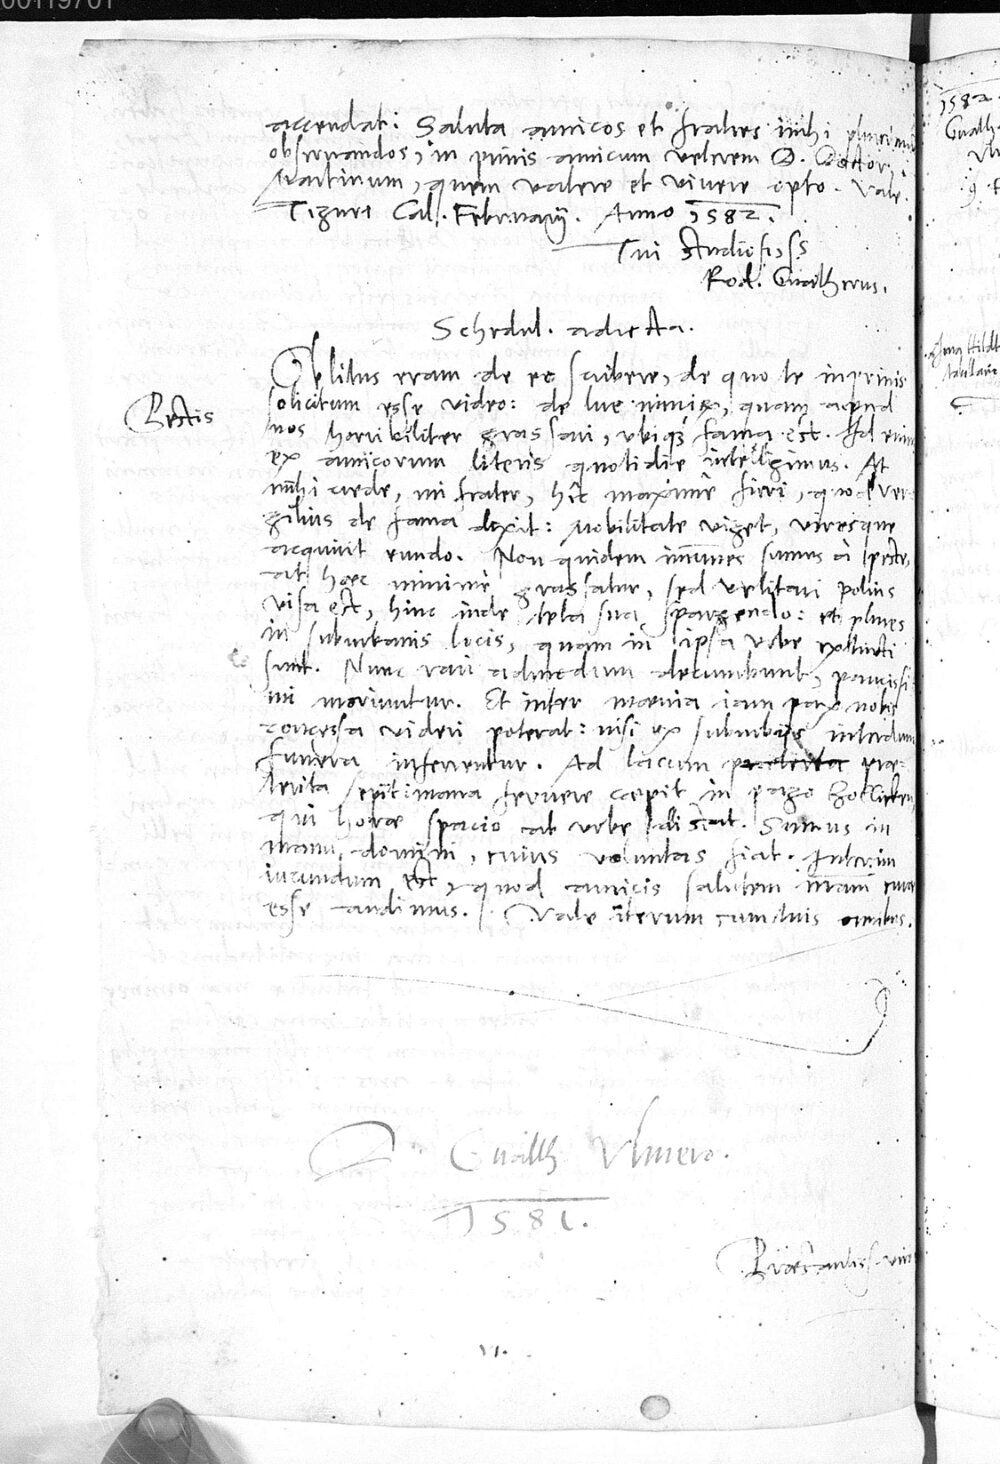 00119701
accendat: Saluta amicos et fratres mihi plurimum
observandos, in primis amicum veterem D. Doctor.
Martinum, quem valere et vivere opto. Vale.
Tiguri Cal. Februarij. Anno 1582.
Tui studiosiss
Rod. Gualtherus.
Schedul. adiecta.
Oblitus eram de eo scribere, de quo te inprimis
Pestis
solicitum esse video: de lue nimiR, quam apud
nos horribiliter grassari, ubiq3 fama est. Id enim
ex amicorum literis quotidie intelligimus. At
mihi crede, mi frater, hîc maximè fieri, quod Ver-
gilius de fama dixit: Mobilitate viget, viresque
acquirit eundo. Non quidem immunes sumus à peste,
at haec minimè grassatur, sed velitari potius
visa est, hinc inde tela sua spargendo: et plures
in suburbanis locis, quam in ipsa urbe extincti
sunt. Nunc rari admodum decumbunt, paucissi-
mi moriuntur. Et inter moenia iam pax nobis
concessa videri poterat: nisi ex suburbijs interdum
funera inferrentur. Ad lacum praeterita prae-
terita septimana fervere coepit in pago
qui horae spacio ab urbe distat. Sumus in
manu domini, cuius voluntas fiat. Interim
iucundum est, quod amicis salutem nram curae
esse audimus. Vale iterum cum tuis omnibus.
D. Gualth Ulmero.
1581.
Praestantiss. viro
VI.
1582.
Gualth.